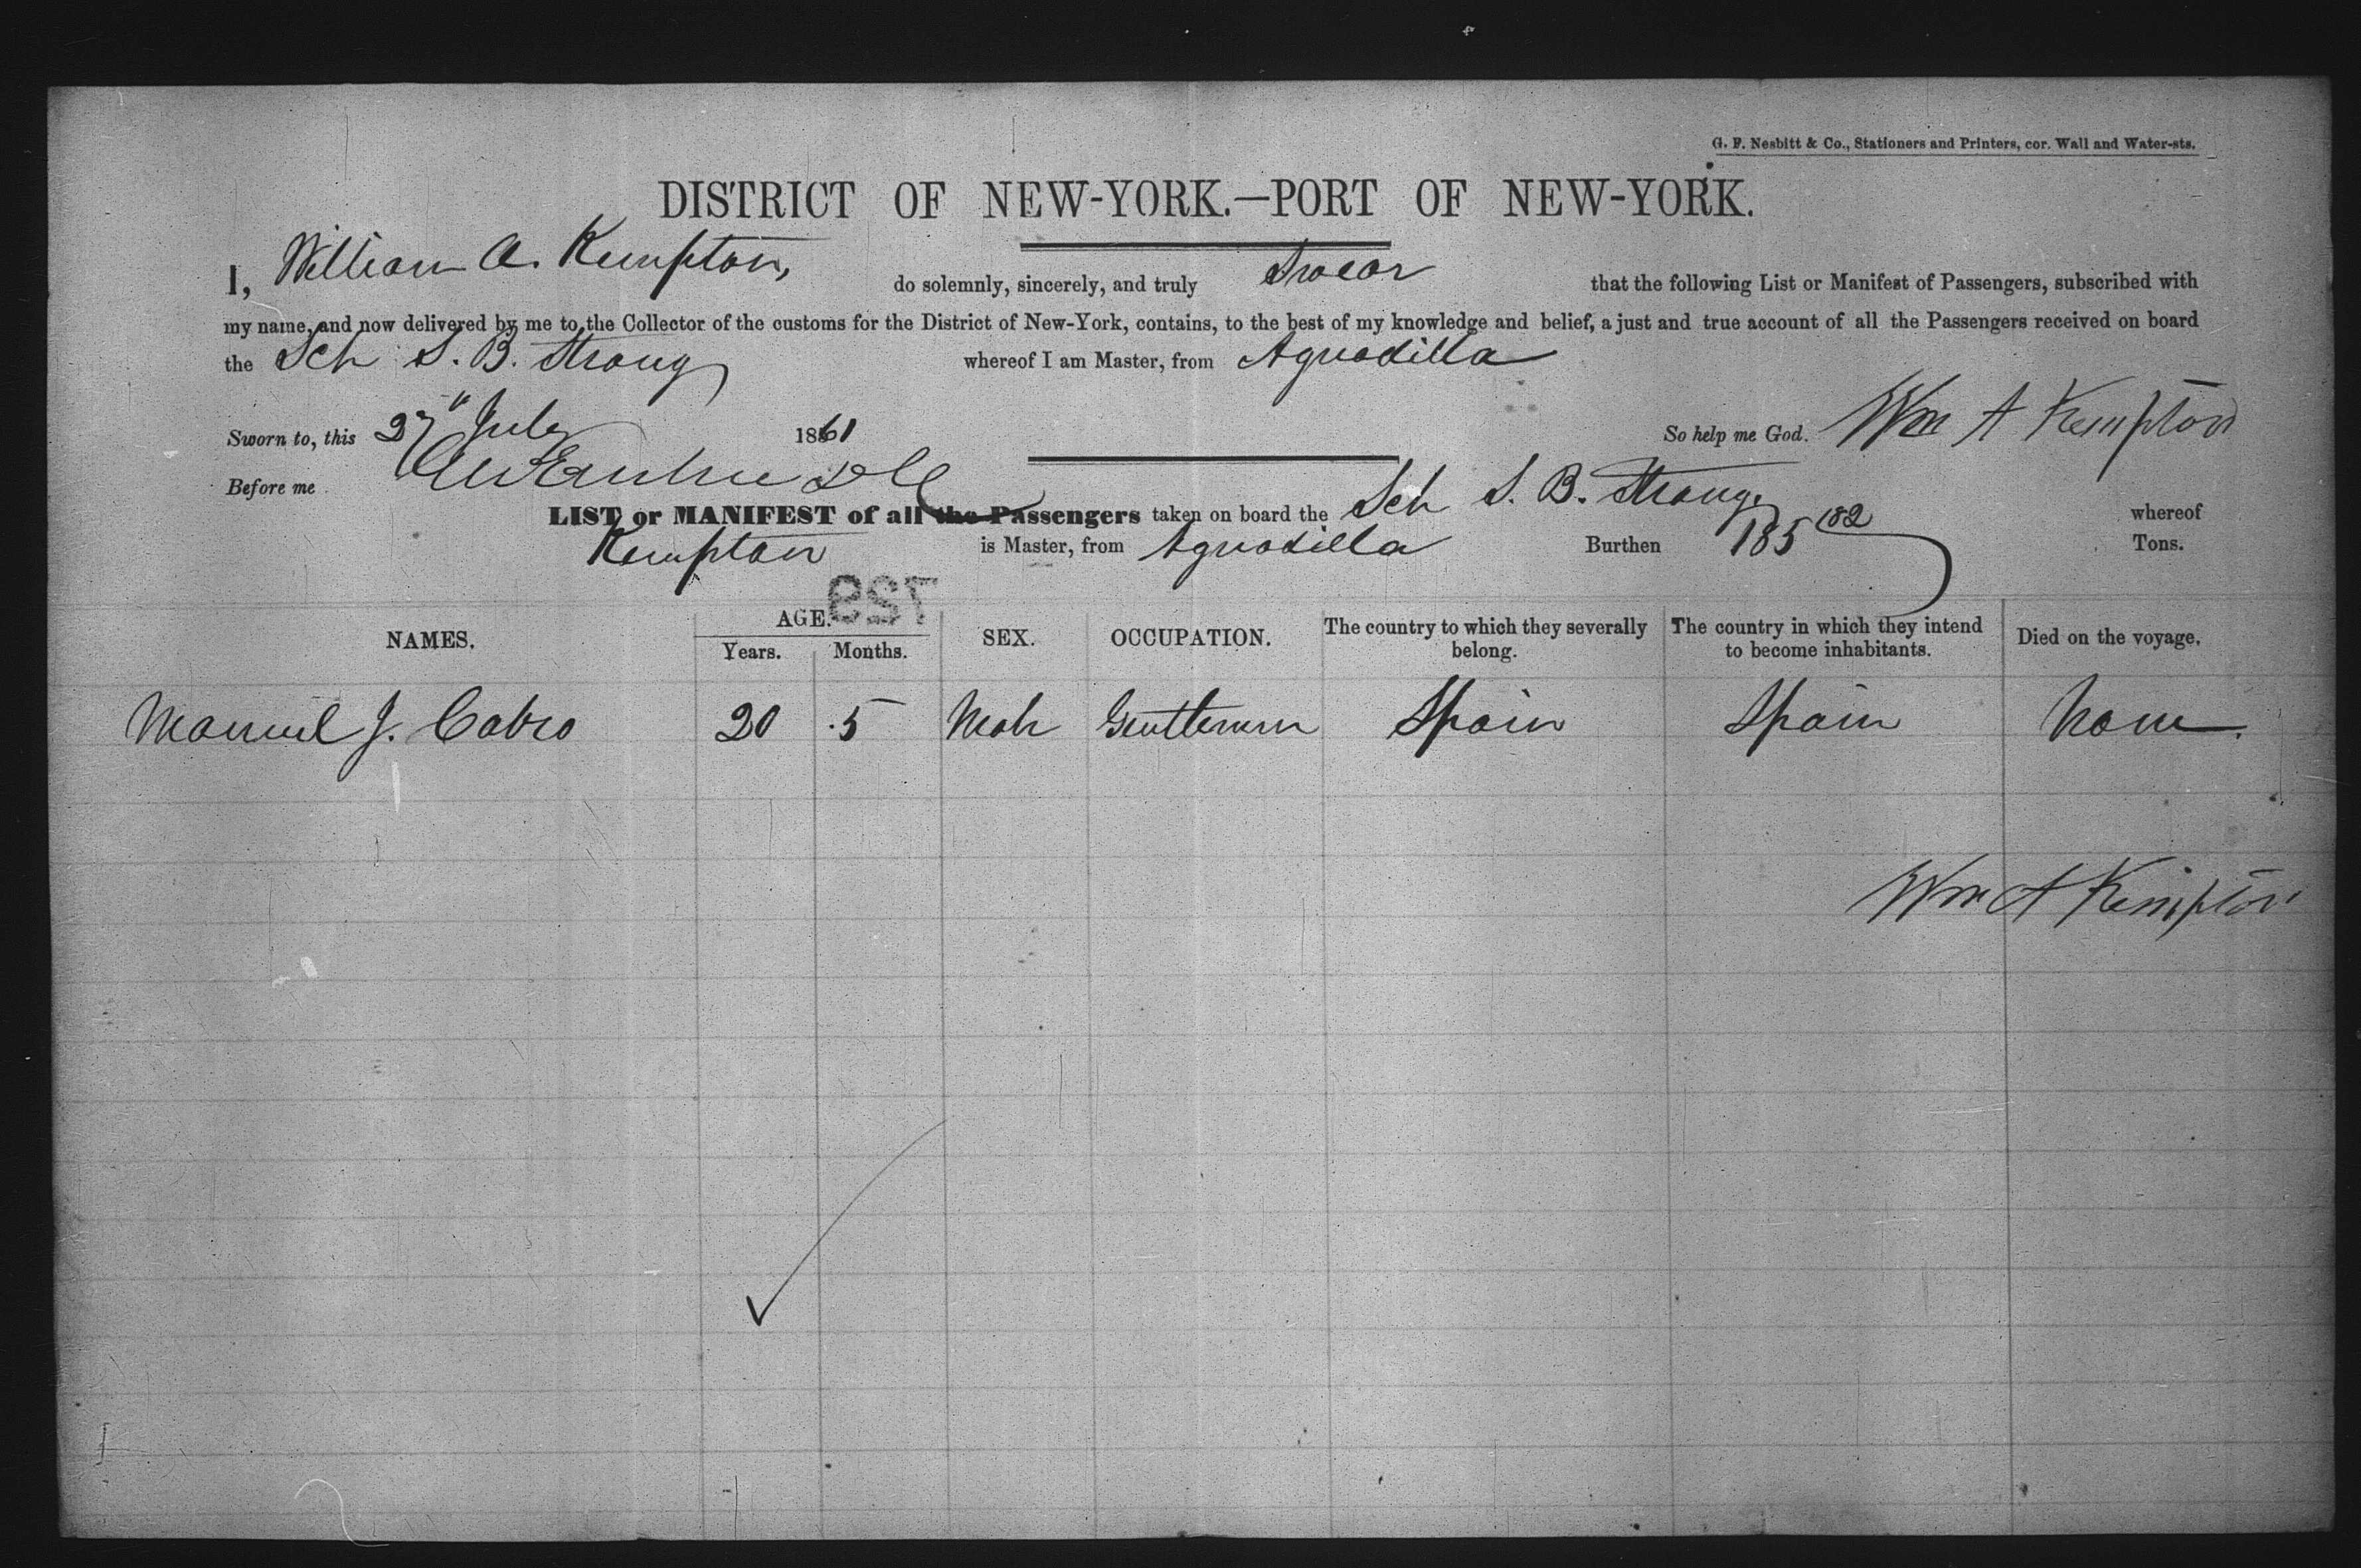 G. F. Nesbitt & Co., Stationers and Printers, cor. Wall and Water-sts.
DISTRICT OF NEW-YORK.—PORT OF NEW-YORK.
I, William A. Kempton, do solemnly, sincerely, and truly Swear that the following List or Manifest of Passengers, subscribed with
my name, and now delivered by me to the Collector of the customs for the District of New-York, contains, to the best of my knowledge and belief, a just and true account of all the Passengers received on board
the Sch S. B. Strong whereof I am Master, from Aguadilla
Sworn to, this 27" July 1861 So help me God. Wm A Kempton
Before me
LIST or MANIFEST of all the Passengers taken on board the Sch S. B. Strong whereof
Kempton is Master, from Aguadilla Burthen 185 Tons.
729
NAMES. AGE. Years. Months. SEX. OCCUPATION. The country to which they severally belong. The country in which they intend to become inhabitants. Died on the voyage.
Manuel J. Cabro 20 5 Male Gentleman Spain Spain None.
Wm A Kempton